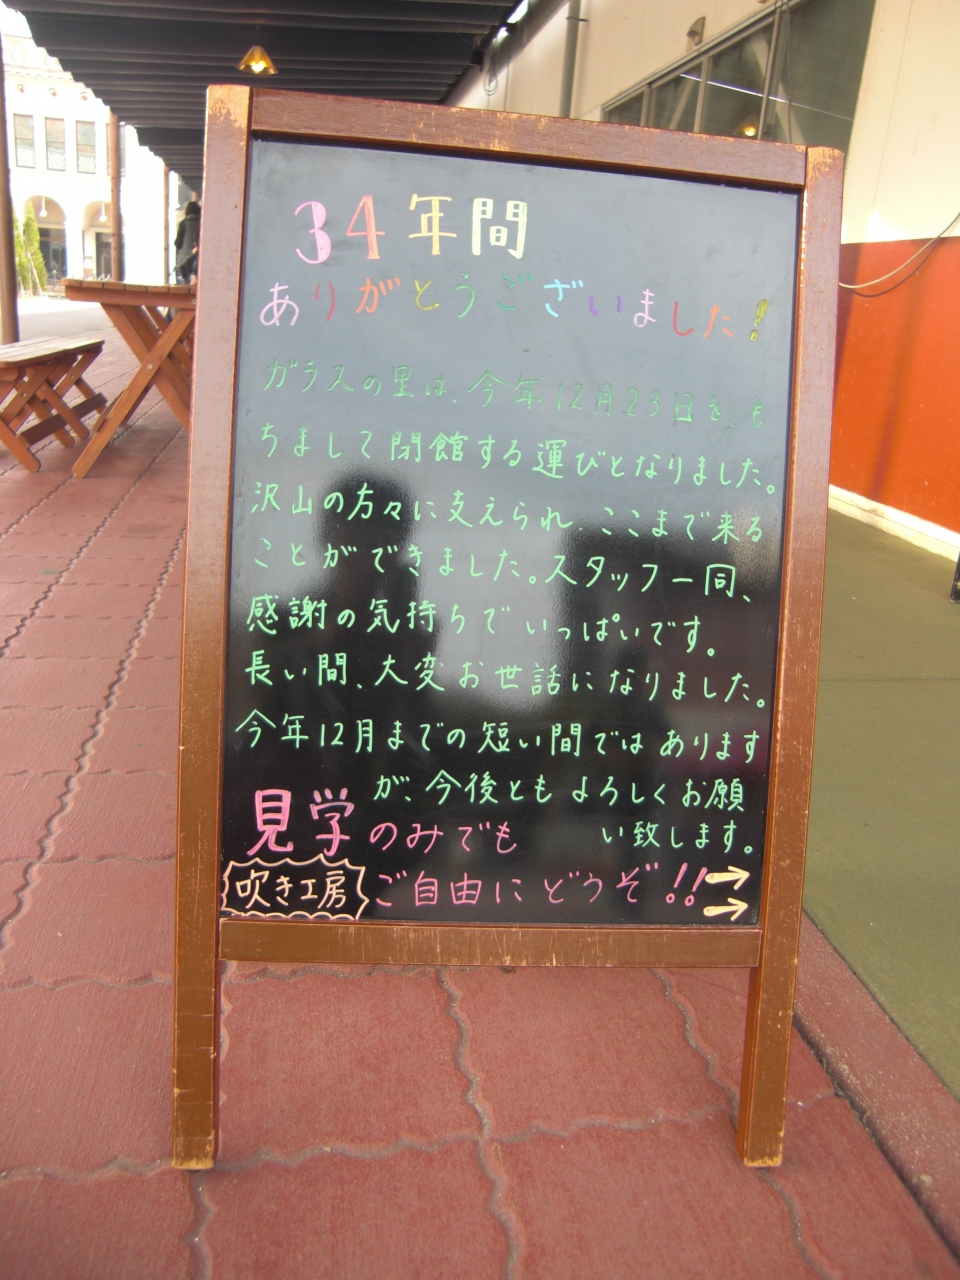 34年間
ありがとうございました!
ガラスの里は、今年12月23日をも
ちまして閉館する運びとなりました。
沢山の方々に支えられ、ここまで来る
ことができました。スタッフ一同、
感謝の気持ちでいっぱいです。
長い間、大変お世話になりました。
今年12月までの短い間ではあります
が、今後ともよろしくお願
い致します。
見学のみでも
吹き工房 ご自由にどうぞ!!→→